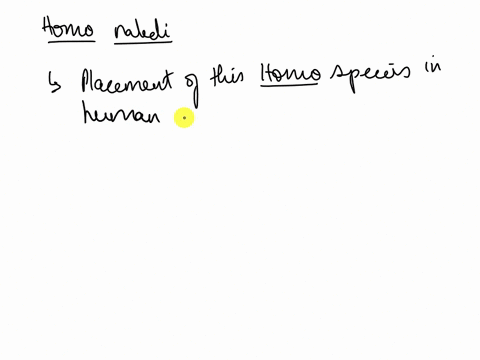 Homo naledi
↳ Placement of this Homo species in
human